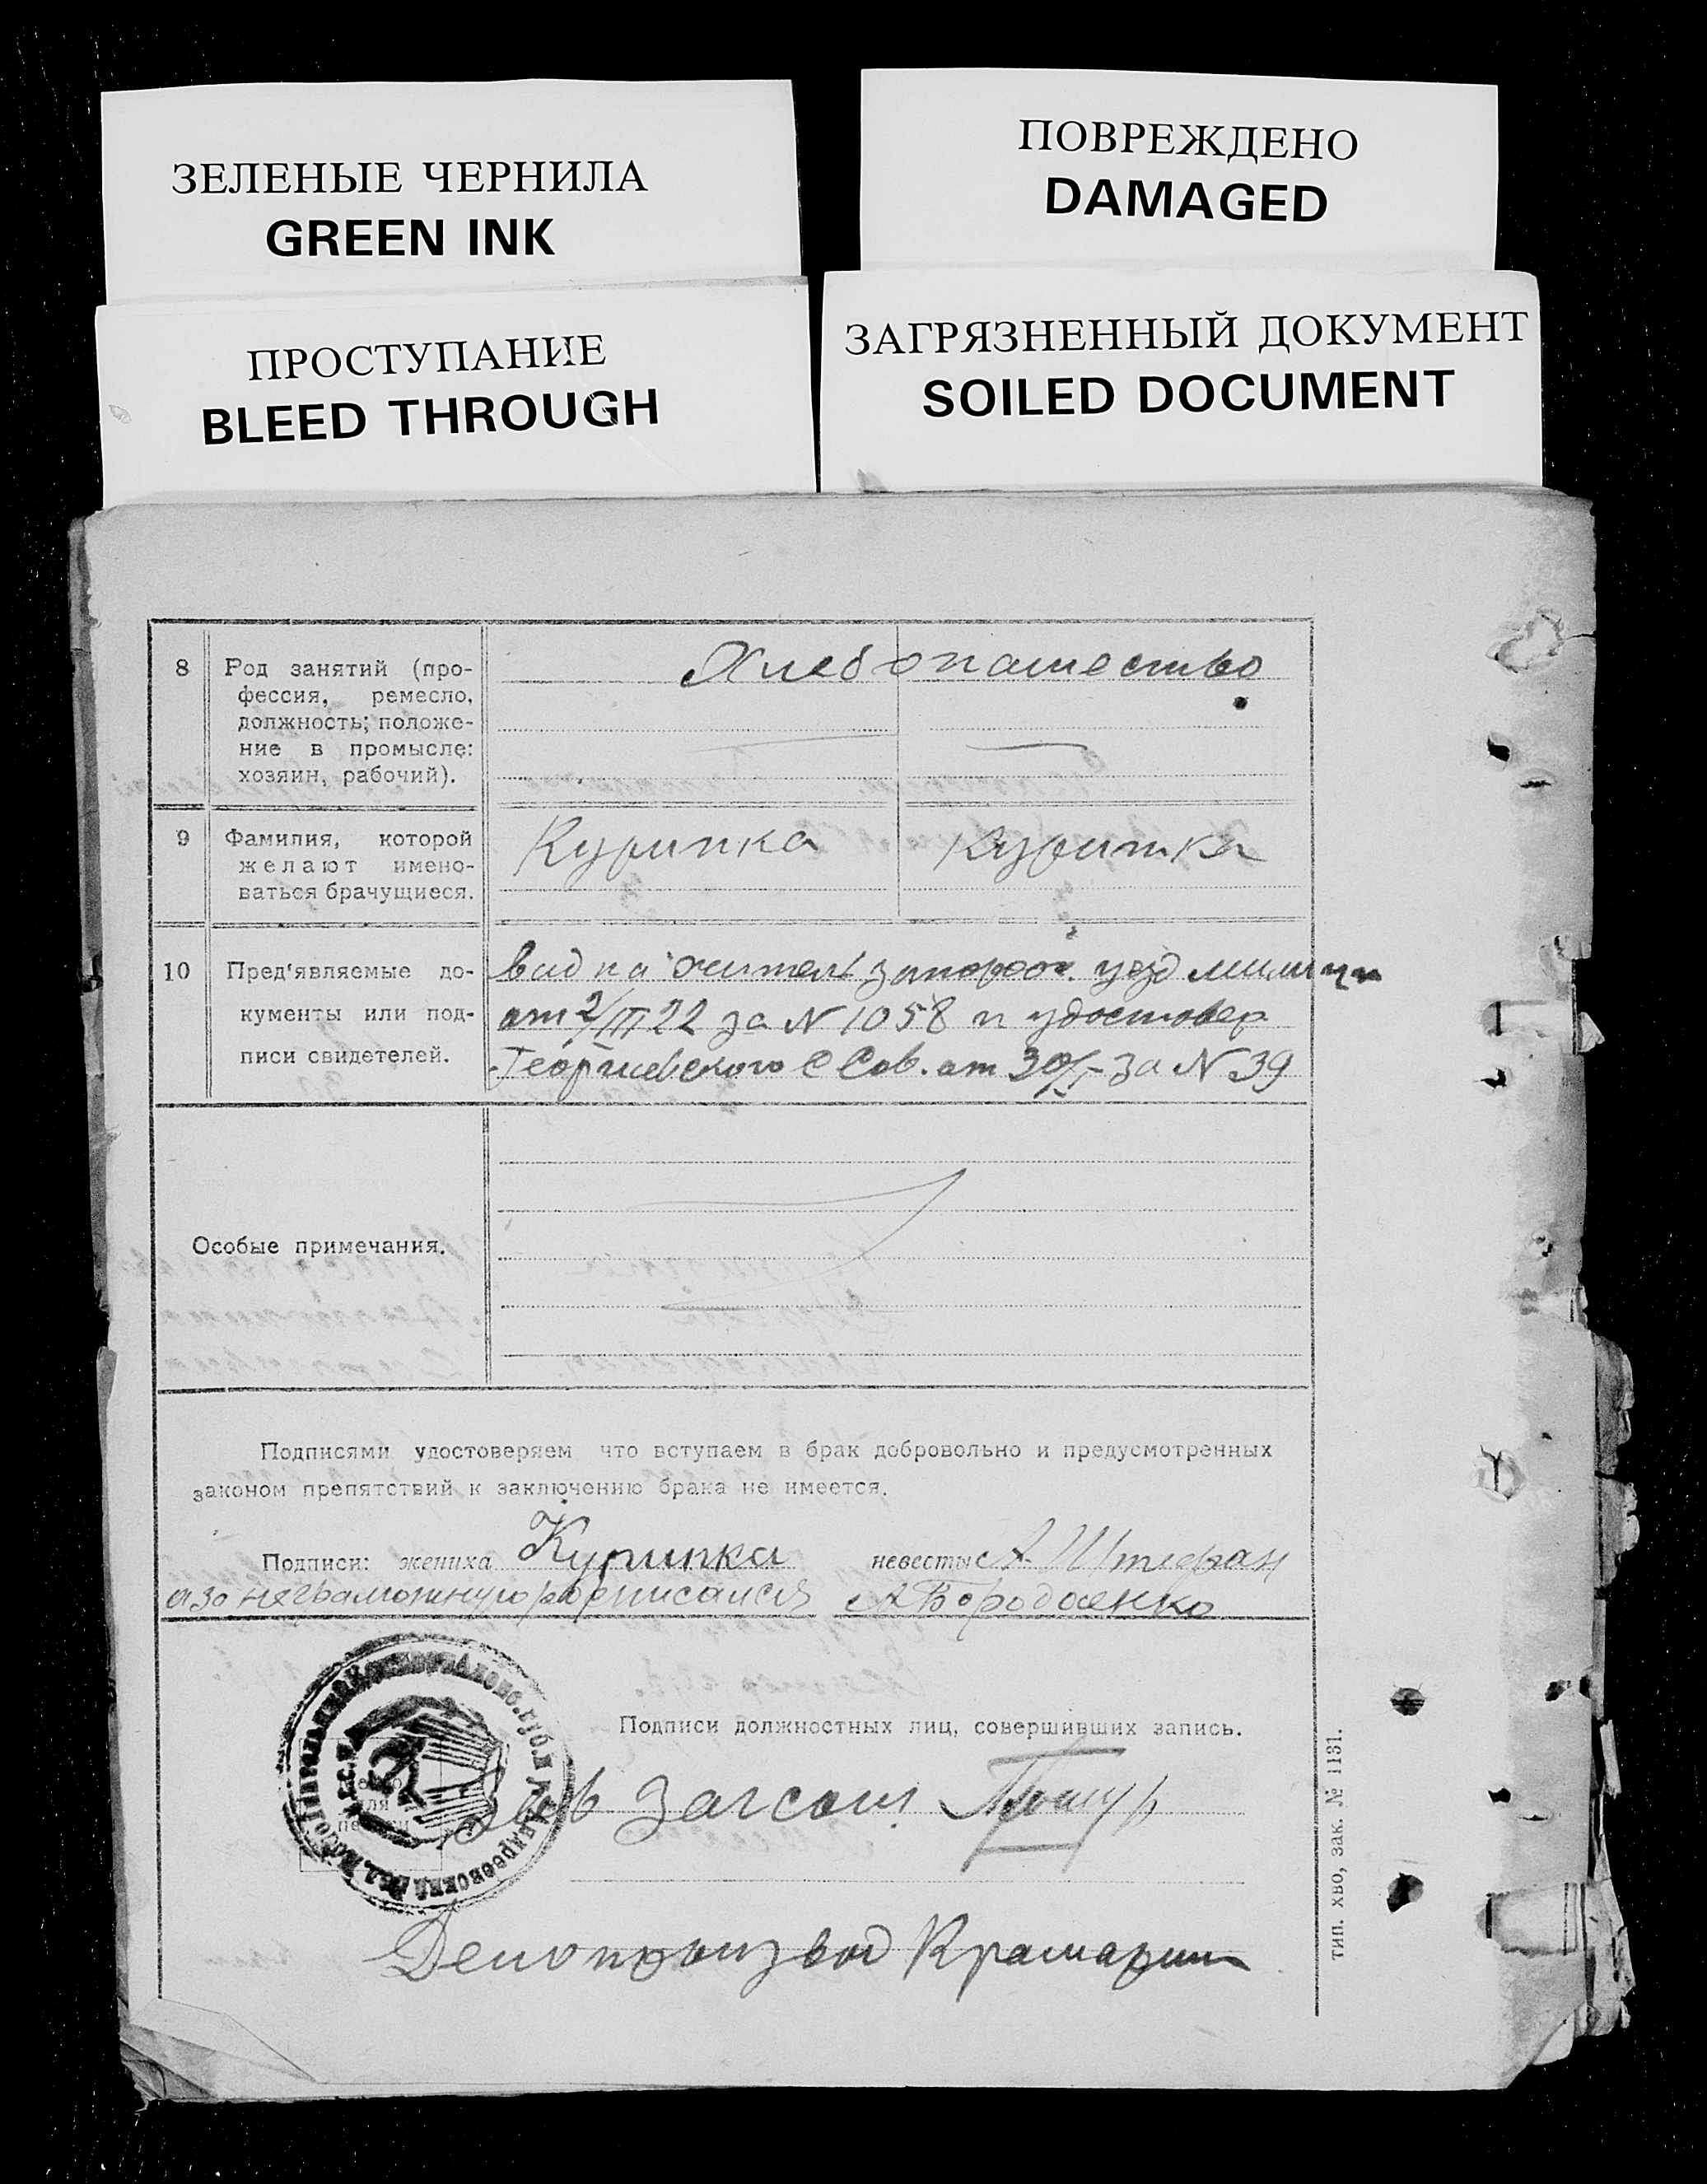 ЗЕЛЕНЫЕ ЧЕРНИЛА
GREEN INK
ПОВРЕЖДЕНО
DAMAGED
ПРОСТУПАНИЕ
BLEED THROUGH
ЗАГРЯЗНЕННЫЙ ДОКУМЕНТ
SOILED DOCUMENT
8 Род занятий (про-
фессия, ремесло,
должность; положе-
ние в промысле:
хозяин, рабочий).
Хлебопашество
9 Фамилия, которой
желают имено-
ваться брачущиеся.
Курипка Курипка
10 Пред'являемые до-
кументы или под-
писи свидетелей.
вид на жительс запорож уезд милиции
от 2/III 22 за N 1058 и удостовер
Георгиевского С Сов. от 30/X за N 39
Особые примечания.
Подписями удостоверяем что вступаем в брак добровольно и предусмотренных
законом препятствий к заключению брака не имеется.
Подписи: жениха Курипка невесты А. Штефан
а за неграмотную росписался А Бородаенко
Подписи должностных лиц, совершивших запись.
Зав Загсом
Делопроизвод Крамарин
тип. хво, зак. № 1131.